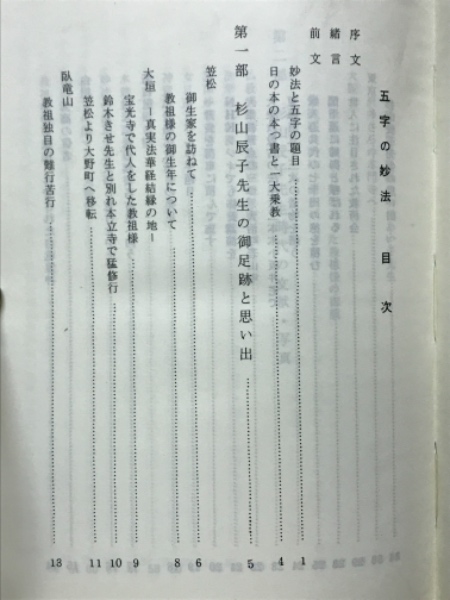 五字の妙法　目次
序文
緒言
前文
妙法と五字の題目 1
日の本の本つ書と一大乗教 4
第一部　杉山辰子先生の御足跡と思い出 5
笠松
御生家を訪ねて 6
教祖様の御生年について 8
大垣　―真実法華経結縁の地―
宝光寺で代人をした教祖様 9
鈴木きせ先生と別れ本立寺で猛修行 10
笠松より大野町へ移転 11
臥竜山
教祖独目の難行苦行 13